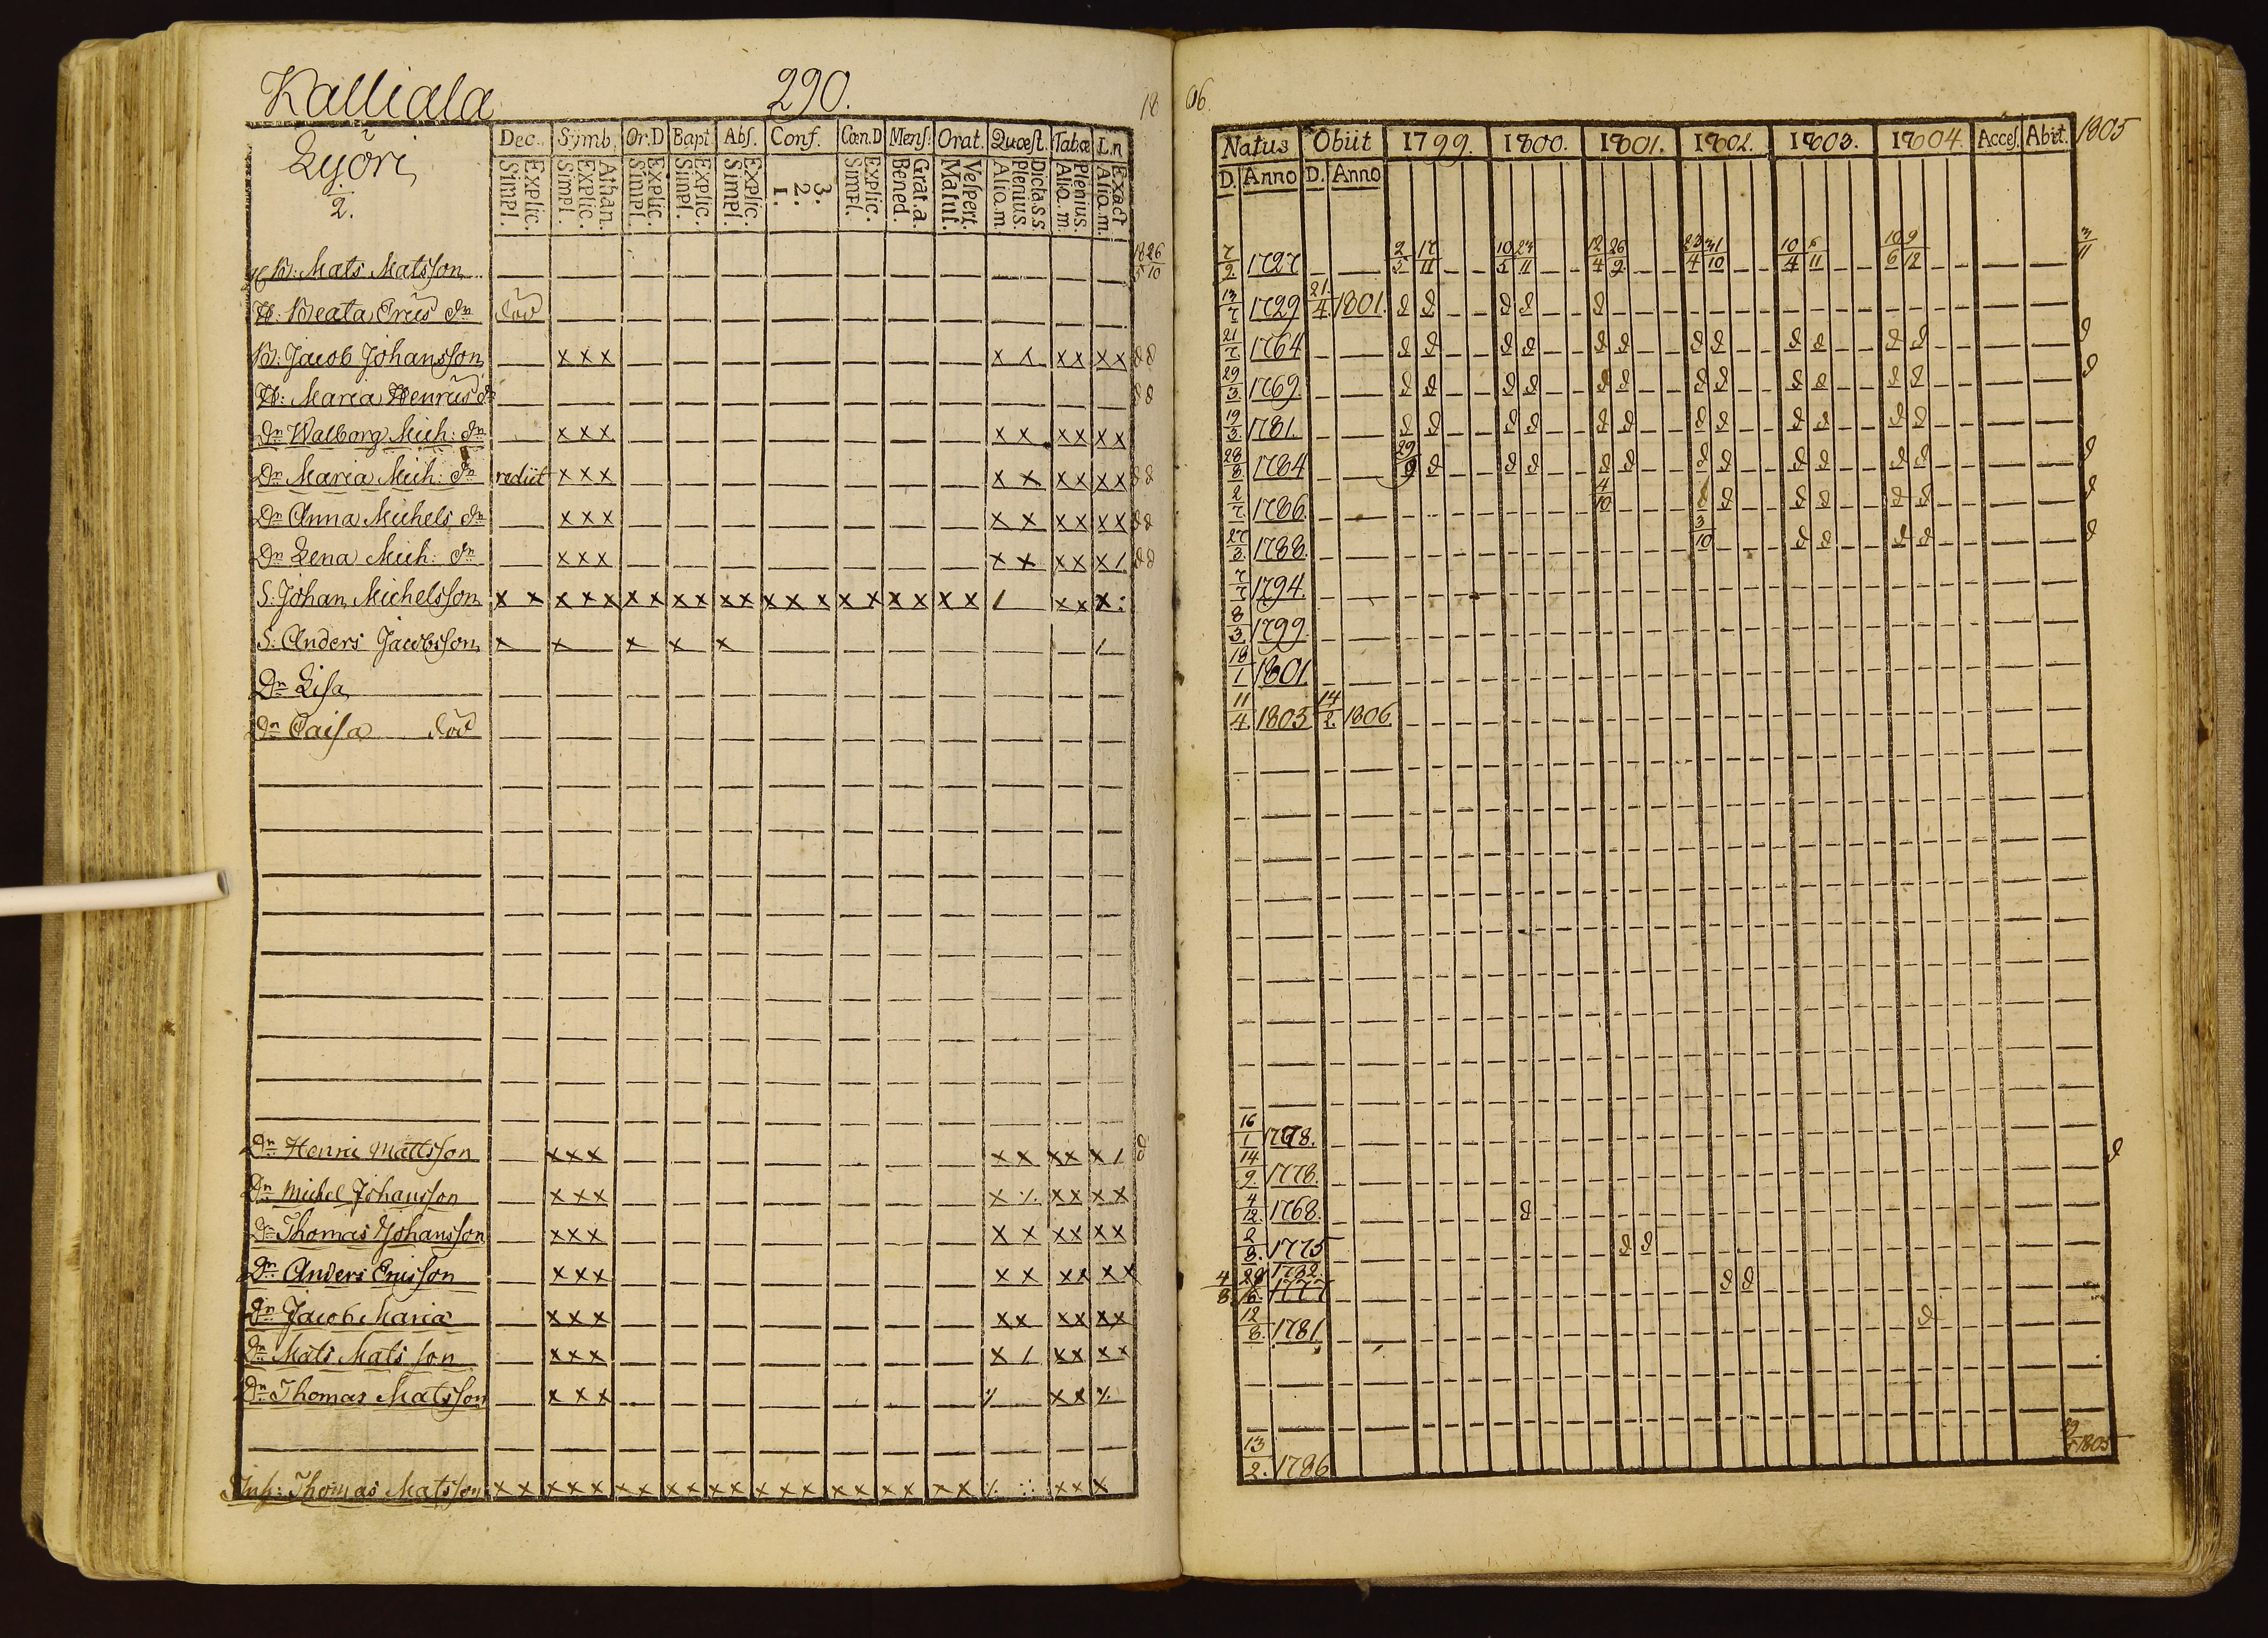 Kalliala 290. 18
Lyöri
2.
Dec. Symb. Or.D Bapt. Abs. Conf. Cœn.D Mens. Orat. Quæst. Tabæ L.n
Explic. Simpl. Athan. Explic. Simpl. Explic. Simpl. Explic. Simpl. Explic. Simpl. 3. 2. 1. Explic. Simpl. Grat.a. Bened. Vespert. Matut. Dicta.s.s Plenius. Alio.m. Plenius. Alio.m. Exact Alio.m.
B: Mats Matsson
H: Beata Ericsdn död
B: Jacob Johansson x x x x x x x x
H: Maria Henricsdn
Dn Walborg Mich: dn x x x x x x x x x
Dn Maria Mich: dn rediit x x x x x x x x x
Dn Anna Michels dn x x x x x x x x x
Dn Lena Mich: dn x x x x x x x x /
S: Johan Michelsson x x x x x x x x x x x x x x x x x x x x / x x x
S: Anders Jacobsson x x x x x /
Dn Lisa
Dn Caisa död
Dn Henric Mattsson x x x x x x x x /
Dn Michel Johansson x x x x x x x x
Dn Thomas Johansson x x x x x x x x x
Dn Anders Ericsson x x x x x x x x x
Dn Jacob Maria x x x x x x x x x
Dn Mats Matsson x x x x / x x x x
Dn Thomas Matsson x x x x x
Inh: Thomas Matsson x x x x x x x x x x x x x x x x x x x x x x x
06.
Natus Obiit 1799. 1800. 1801. 1802. 1803. 1804. Acces. Abit. 1805
D. Anno D. Anno
7/9 1727 2/5 17/11 10/5 23/11 12/4 26/9 23/4 31/10 10/4 6/11 10/6 9/12 3/11
13/7 1729 21/4 1801.
21/7 1764
29/3 1769.
19/3 1781.
28/8 1784 29/9
2/7 1786 4/10
27/3 1788. 3/10
7/7 1794.
8/3 1799
18/1 1801
11/4 1803 14/2 1806
16/1
14/9 1778.
4/12 1768.
2/8 1775
4/8 1782.
1777
12/8 1781
13/2 1786 1805